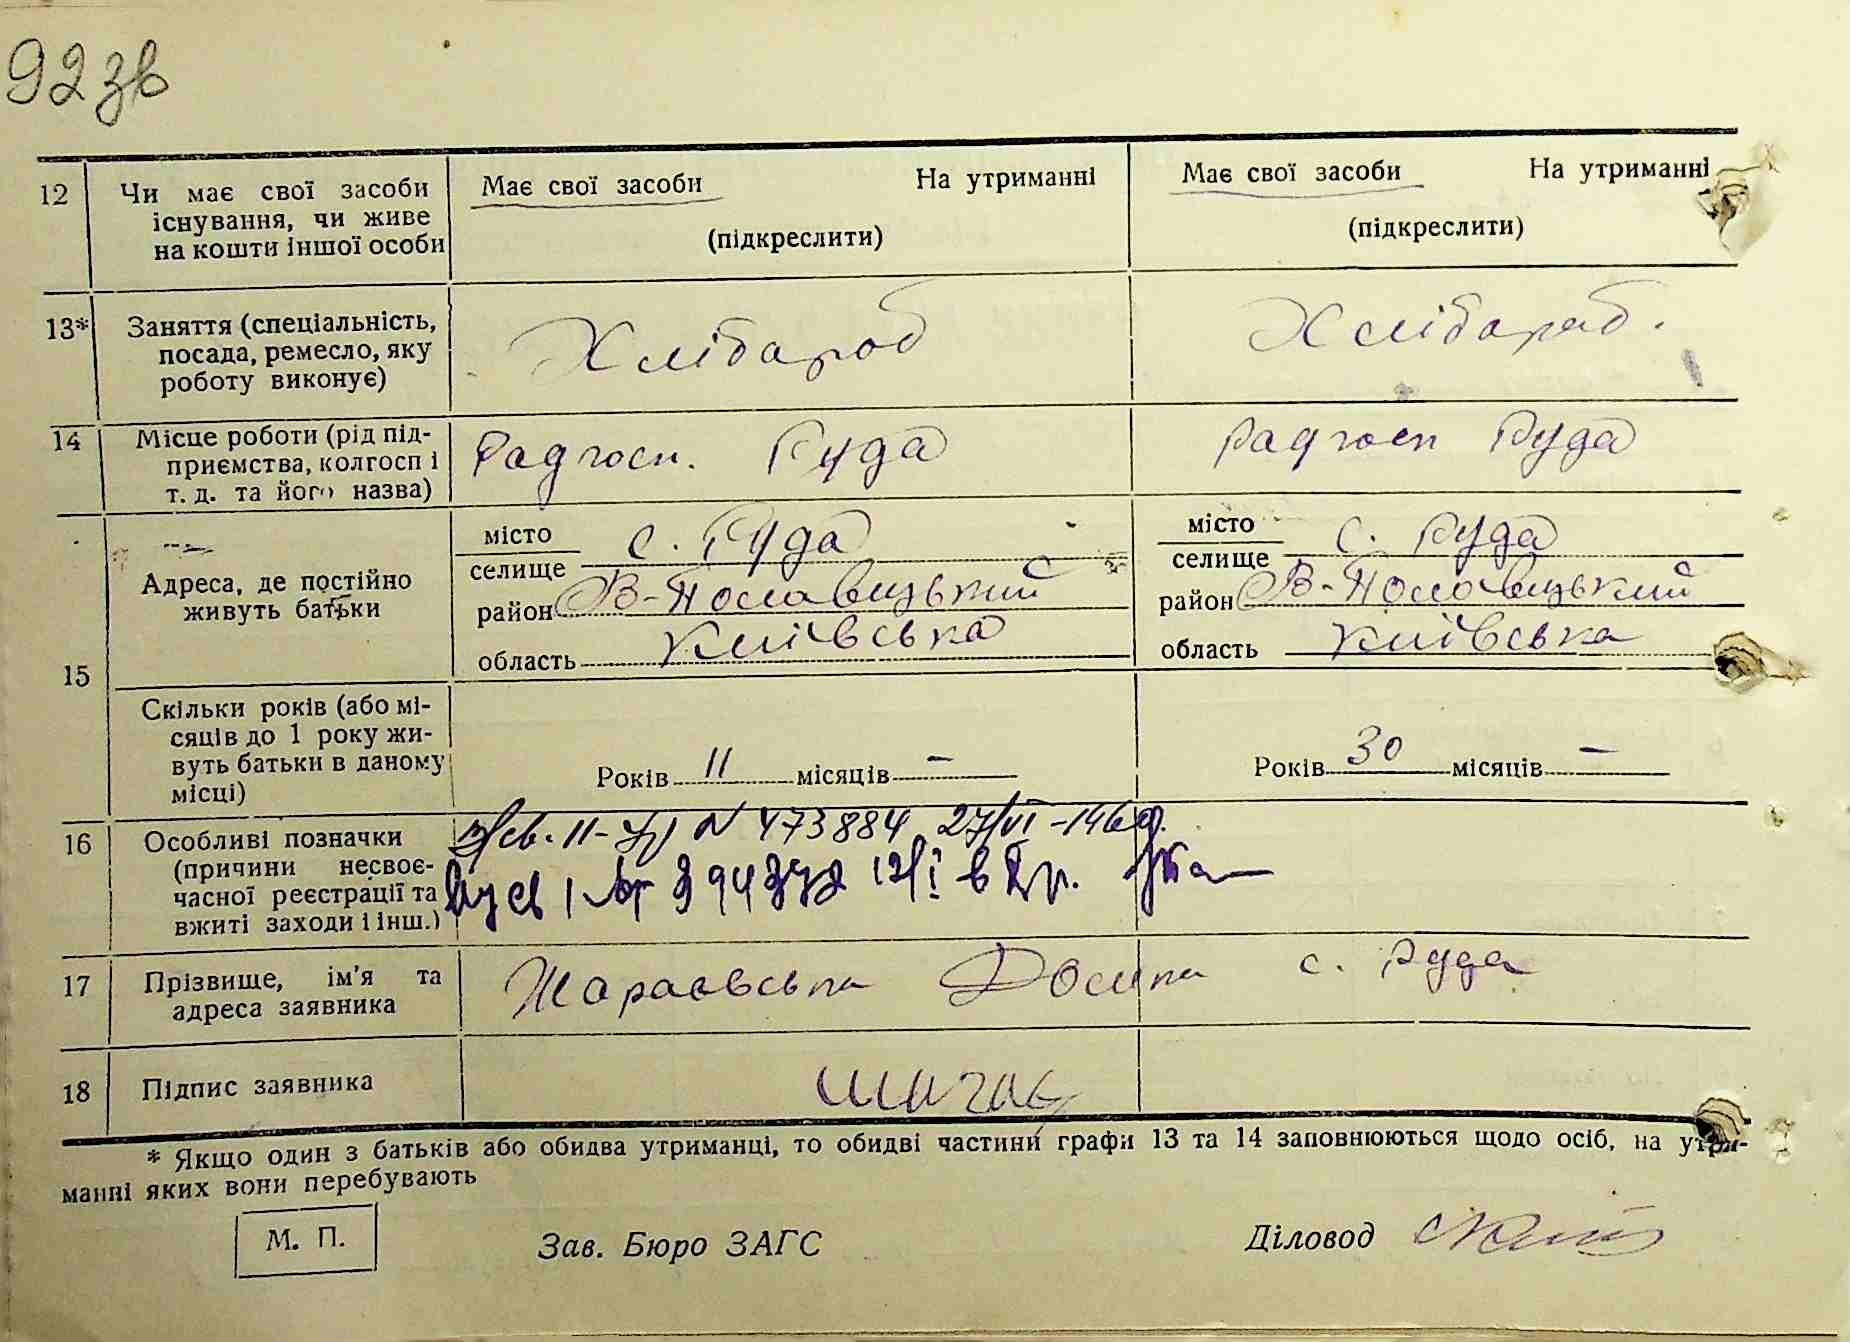 92зв
12 Чи має свої засоби Має свої засоби На утриманні Має свої засоби На утриманні
існування, чи живе
на кошти іншої особи (підкреслити) (підкреслити)
13* Заняття (спеціальність, Хлібароб Хлібароб.
посада, ремесло, яку
роботу виконує)
14 Місце роботи (рід під- Радгосп. Руда Радгосп Руда
приємства, колгосп і
т. д. та його назва)
15
Адреса, де постійно
живуть батьки
місто с. Руда місто с. Руда
селище селище
район В-Половецький район В-Половецький
область Київська область Київська
Скільки років (або мі-
сяців до 1 року жи-
вуть батьки в даному Років 11 місяців — Років 30 місяців —
місці)
16 Особливі позначки N 473884
(причини несвоє-
часної реєстрації та
вжиті заходи і інш.)
17 Прізвище, ім'я та с. Руда
адреса заявника
18 Підпис заявника
* Якщо один з батьків або обидва утриманці, то обидві частини графи 13 та 14 заповнюються щодо осіб, на утри-
манні яких вони перебувають
М. П. Зав. Бюро ЗАГС Діловод